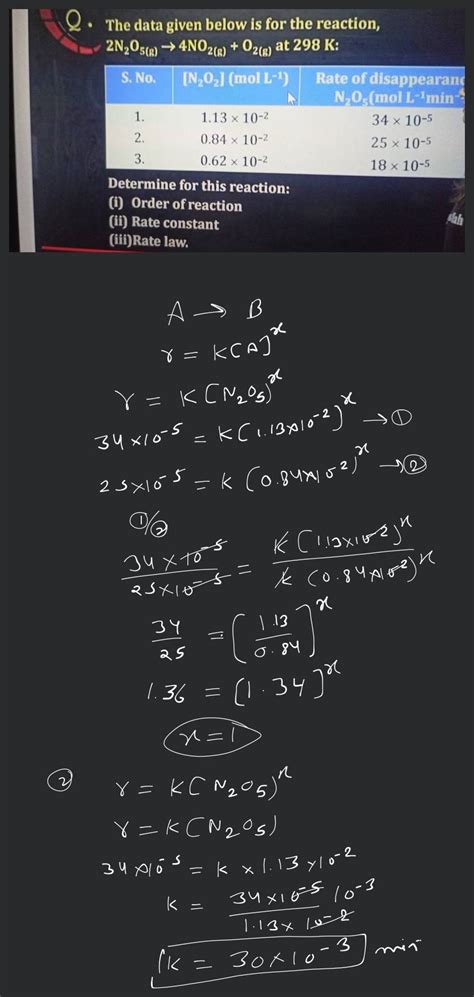 Q. The data given below is for the reaction,
2N₂O₅(g) → 4NO₂(g) + O₂(g) at 298 K:
S. No. [N₂O₂] (mol L⁻¹) Rate of disappearanc
N₂O₅(mol L⁻¹min⁻
1. 1.13 × 10⁻² 34 × 10⁻⁵
2. 0.84 × 10⁻² 25 × 10⁻⁵
3. 0.62 × 10⁻² 18 × 10⁻⁵
Determine for this reaction:
(i) Order of reaction
(ii) Rate constant
(iii)Rate law.
A → B
r = K[A]ˣ
r = K[N₂O₅]ˣ
34×10⁻⁵ = K(1.13×10⁻²)ˣ → ①
25×10⁻⁵ = K (0.84×10⁻²)ˣ → ②
①/②
34×10⁻⁵ / 25×10⁻⁵ = K(1.13×10⁻²)ˣ / K(0.84×10⁻²)ˣ
34/25 = [1.13/0.84]ˣ
1.36 = [1.34]ˣ
x = 1
② r = K[N₂O₅)ˣ
r = K[N₂O₅)
34×10⁻⁵ = K × 1.13×10⁻²
K = 34×10⁻⁵ / 1.13×10⁻² 10⁻³
K = 30×10⁻³